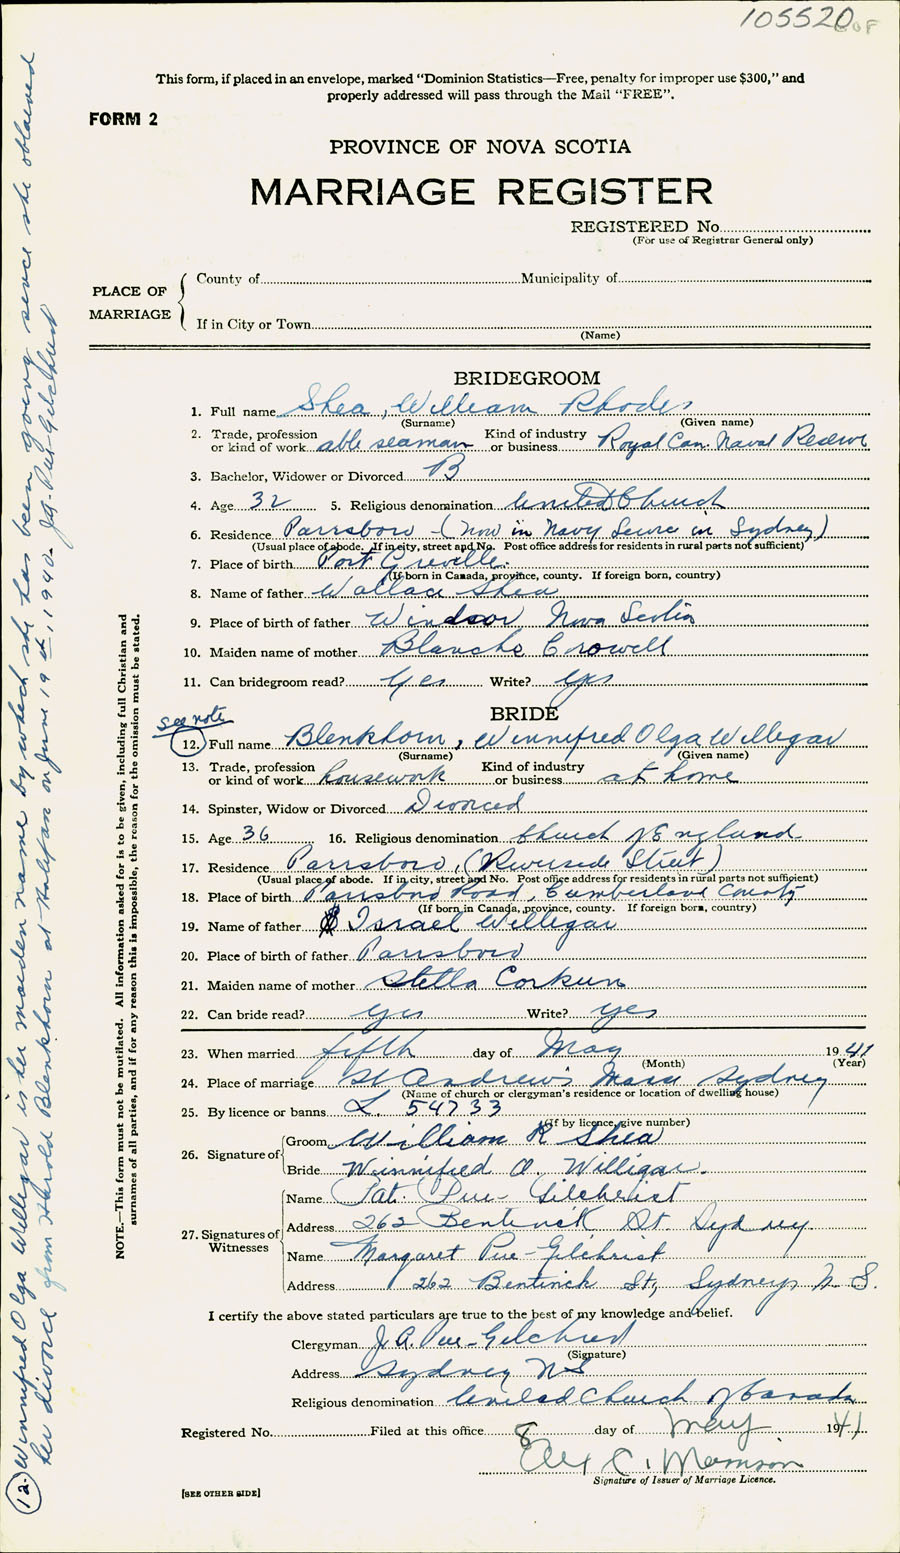 105520
This form, if placed in an envelope, marked "Dominion Statistics—Free, penalty for improper use $300," and
properly addressed will pass through the Mail "FREE".
FORM 2
PROVINCE OF NOVA SCOTIA
MARRIAGE REGISTER
REGISTERED No.
(For use of Registrar General only)
PLACE OF MARRIAGE
County of Municipality of
If in City or Town
(Name)
BRIDEGROOM
1. Full name Shea, William Rhodes
(Surname) (Given name)
2. Trade, profession or kind of work able seaman Kind of industry or business Royal Can. Naval Reserve
3. Bachelor, Widower or Divorced B
4. Age 32 5. Religious denomination United Church
6. Residence Parrsboro - (now in Navy Service in Sydney)
(Usual place of abode. If in city, street and No. Post office address for residents in rural parts not sufficient)
7. Place of birth Port Greville.
(If born in Canada, province, county. If foreign born, country)
8. Name of father Wallace Shea
9. Place of birth of father Windsor, Nova Scotia
10. Maiden name of mother Blanche Crowell
11. Can bridegroom read? Yes Write? Yes
BRIDE
see note
12. Full name Blenkhorn, Winnifred Olga Willigar
(Surname) (Given name)
13. Trade, profession or kind of work housework Kind of industry or business at home
14. Spinster, Widow or Divorced Divorced
15. Age 36 16. Religious denomination Church of England
17. Residence Parrsboro, (Riverside Street)
(Usual place of abode. If in city, street and No. Post office address for residents in rural parts not sufficient)
18. Place of birth Parrsboro Road, Cumberland County
(If born in Canada, province, county. If foreign born, country)
19. Name of father Israel Willigar
20. Place of birth of father Parrsboro
21. Maiden name of mother Stella Corkum
22. Can bride read? Yes Write? Yes
23. When married fifth day of May 1941
(Month) (Year)
24. Place of marriage St Andrew's Manse Sydney
(Name of church or clergyman's residence or location of dwelling house)
25. By licence or banns L. 54733
(If by licence, give number)
26. Signature of
Groom William R Shea
Bride Winnifred O. Willigar.
27. Signatures of Witnesses
Name Pat. Pue-Gilchrist
Address 262 Bentinck St Sydney
Name Margaret Pue-Gilchrist
Address 262 Bentinck St, Sydney, N.S.
I certify the above stated particulars are true to the best of my knowledge and belief.
Clergyman J. A. Pue-Gilchrist
(Signature)
Address Sydney NS
Religious denomination United Church of Canada
Registered No. Filed at this office 8 day of May 1941
Alex C. Morrison
Signature of Issuer of Marriage Licence.
[SEE OTHER SIDE]
NOTE.—This form must not be mutilated. All information asked for is to be given, including full Christian and
surnames of all parties, and if for any reason this is impossible, the reason for the omission must be stated.
12. Winnifred Olga Willigar is her maiden name by which she has been going since she obtained
her divorce from Harold Blenkhorn at Halifax on June 19th, 1940. J.A. Pue-Gilchrist